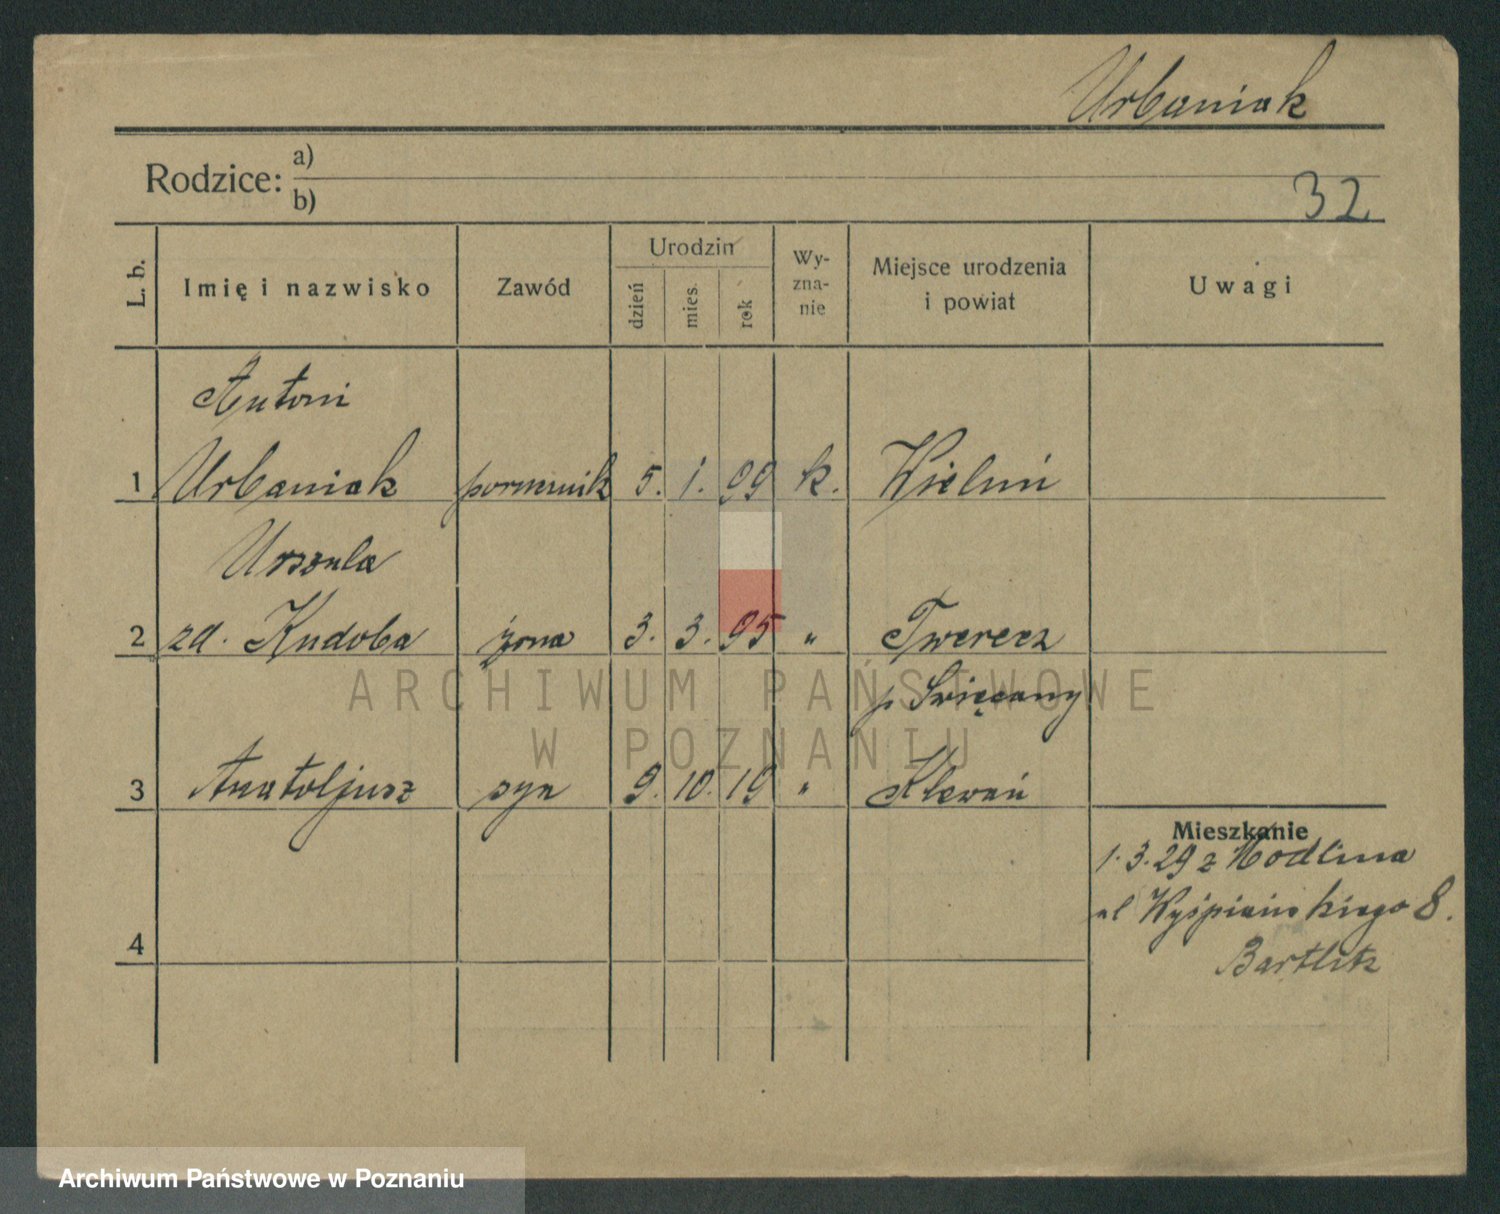 Urbaniak
Rodzice: a)
b)
32
L. b.
Imię i nazwisko
Zawód
Urodzin
dzień
mies.
rok
Wy-
zna-
nie
Miejsce urodzenia
i powiat
Uwagi
Antoni
1 Urbaniak 5. 1. 99 k. Wieluń
Urszula
2 zd. Kudoba żona 3. 3. 95 " Twerecz
p. Święcany
3 Anatoljusz syn 9. 10. 19 " Klewań
4
Mieszkanie
1. 3. 29 z Modlina
ul Wyśpiańskiego 8.
Bartlitz
ARCHIWUM PAŃSTWOWE
W POZNANIU
Archiwum Państwowe w Poznaniu